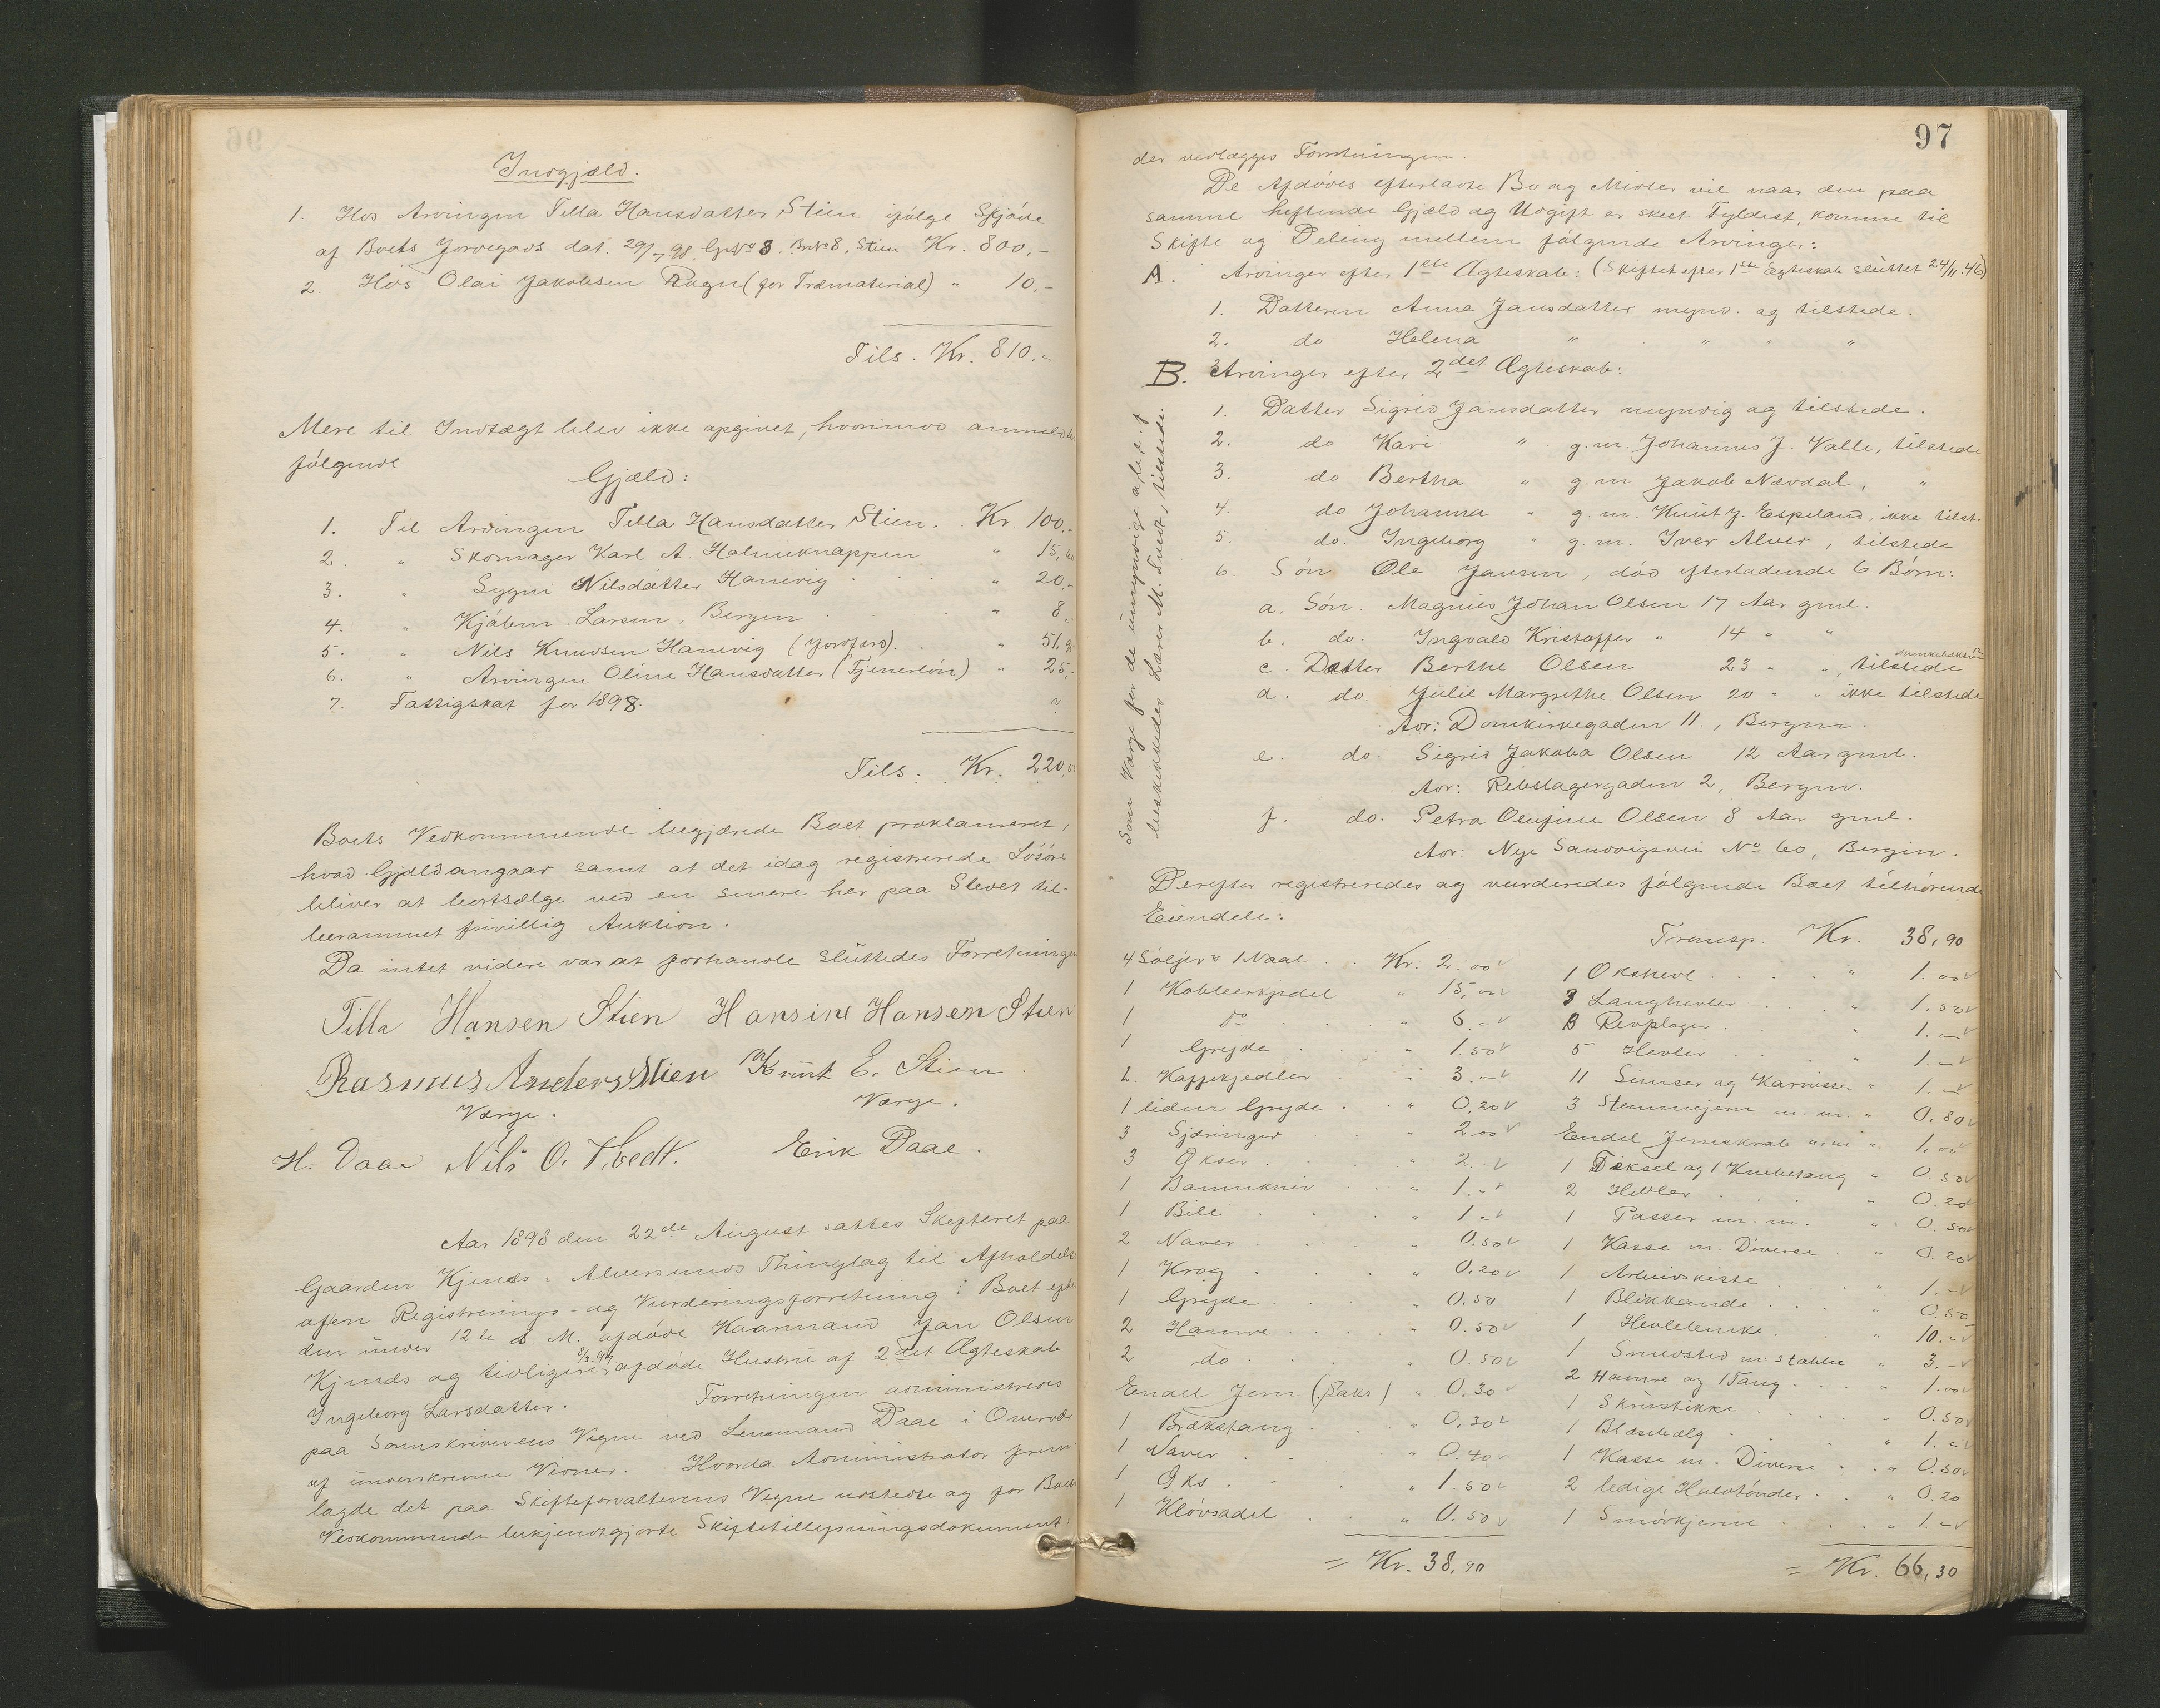 Indgjæld.
1. Hos Arvingen Tilla Hansdatter Stien ifølge Skjøde
af Boets Jordegods dat. 29/7 98. Gr.No 3. Br.No 8. Stien Kr. 800,-
2. Hos Olai Jakobsen Ragn (for Træmaterial) " 10.-
Tils. Kr. 810.-
Mere til Indtægt blev ikke opgivet, hvorimod anmeldtes
følgende
Gjæld:
1. Til Arvingen Tilla Hansdatter Stien. Kr. 100,-
2. " Skomager Karl A. Holmeknappen " 15,
3. " Sygni Nilsdatter Hanevig " 20.-
4. " Kjøbm. Larsen, Bergen " 8,-
5. " Nils Knudsen Hanevig (Jordfærd). " 51,
6. " Arvingen Oline Hansdatter (Tjenerløn) " 25,-
7. Fattigskat for 1898. ?
Tils. Kr. 220,
Boets Vedkommende begjærede Boet proklameret,
hvad Gjæld angaar samt at det idag registrerede Løsøre
bliver at bortsælge ved en senere her paa Stedet til-
berammet frivillig Auktion.
Da intet videre var at forhandle sluttedes Forretningen
Tilla Hansen Stien Hansine Hansen Stien
Rasmus Anders Stien Knut E. Stien
Værge. Værge.
H. Daae Nils O. Tvedt. Erik Daae.
Aar 1898 den 22de August sattes Skifteret paa
Gaarden Kjenes i Alversunds Thinglag til Afholdelse
af en Registrerings- og Vurderingsforretning i Boet efter
den under 12te d. M. afdøde Kaarmand Jan Olsen
Kjenes og tidligere 8/3.97 afdøde Hustru af 2det Ægteskab
Ingeborg Larsdatter. Forretningen administreres
paa Sorenskriverens Vegne ved Lensmand Daae i Overvær
af underskrevne Vidner. Hvorda Administrator frem-
lagde det paa Skifteforvalterens Vegne udstedte og for Boets
Vedkommende bekjendtgjorte Skiftetillysningsdokument,
97
der vedlægges Forretningen.
De Afdødes efterladte Bo og Midler vil naar den paa
samme heftende Gjæld og Udgift er skeet Fyldest, komme til
Skifte og Deling mellem følgende Arvinger:
A. Arvinger efter 1ste Ægteskab: (Skiftet efter 1ste Ægteskab sluttet 24/11.46)
1. Datteren Anna Jansdatter mynd. og tilstede.
2. do Helena " " " "
B. Arvinger efter 2det Ægteskab:
1. Datter Sigrid Jansdatter myndig og tilstede.
2. do Kari " g.m. Johannes J. Valle, tilstede
3. do Bertha " g.m Jakob Nævdal, "
4. do Johanna " g.m. Knut J. Espeland, ikke tilst.
5. do. Ingeborg " g.m. Iver Alver, tilstede
6. Søn Ole Jansen, død efterladende 6 Børn:
a. Søn Magnus Johan Olsen 17 Aar gml.
b. do. Ingvald Kristoffer " 14 " "
c. Datter Berthe Olsen 23 " ", tilstede
d. do. Julie Margrethe Olsen 20 " " ikke tilstede
Adr: Domkirkegaden 11., Bergen.
e. do. Sigrid Jakoba Olsen 12 Aar gml.
Adr: Rebslagergaden 2, Bergen.
f. do. Petra Olufine Olsen 8 Aar gml.
Adr: Nye Sandvigsvei No 60, Bergen.
Som Værge for de umyndige
beskikkedes Lærer M. Tvedt, tilstede.
Derefter registreredes og vurderedes følgende Boet tilhørende
Eiendele:
4 Søljer & 1 Naal . . Kr. 2.00
1 Kobberkjedel " 15,00
1 do " 6.-
1 Gryde " 1.50
2. Kaffekjedler " 3.-
1 liden Gryde " 0.20
3 Sjæringer " 2.00
3 Økser " 2.-
1 Baandkniv " 1.-
1 Bile " 1.-
2 Naver " 0.50
1 Krog " 0.20
1 Gryde " 0.50
2 Hamre " 0.50
2 do " 0.50
Endel Jern (Saks) " 0.30
1 Brækstang " 0.30
1 Naver " 0.40
1 Øks " 1.50
1 Kløvsadel " 0.50
= Kr. 38,90
Transp. Kr. 38,90
1 Okshevl " 1.00
3 Langhevler " 1.50
3 Revploger " 1.-
5 Hevler " 1.-
11 Simser og Karnisser " 1.-
3 Stemmejern m.m. " 0.80
Endel Jernskrab m.m " 1.00
1 Tæksel og 1 Knibetang " 0.50
2 Hevler " 0.20
1 Passer m.m. " 0.50
1 Kasse m. Diverse " 0.20
1 Arbeidskiste " 1.-
1 Blikkande " 0.50
1 Hevlebenke " 10.-
1 Smedsted m. Stabbe " 3.-
2 Hamre og 1 Tang " 1.00
1 Skrustikke " 0.50
1 Blæsebælg " 1.-
1 Kasse m. Diverse " 0.50
2 ledige Halvtønder " 0.20
1 Smørkjerne " 1.-
= Kr. 66,30